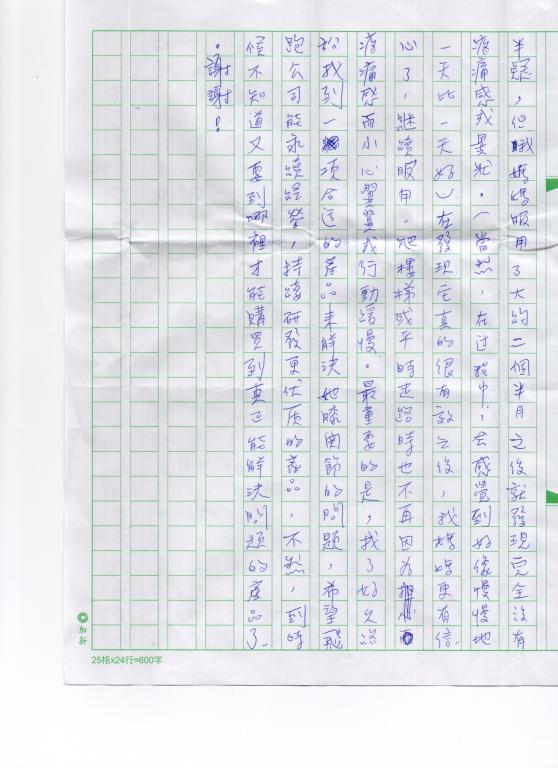 半疑，但我媽媽服用了大約二個半月之後就發現完全沒有
疼痛感或異狀。（當然，在过程中，会感覺到好像慢慢地
一天比一天好）在發現它真的很有效之後，我媽媽更有信
心了，継續服用。爬樓梯或平時走路時也不再因為
疼痛感而小心翼翼或行動緩慢。最重要的是，找了好久終
於找到一項合适的產品來解決她膝関節的問題，希望飛
跑公司能永續経營，持續研發更优质的產品，不然，到時
候不知道又要到哪裡才能購買到真正能解決問題的產品了。
謝謝！
加新
25格x24行=600字